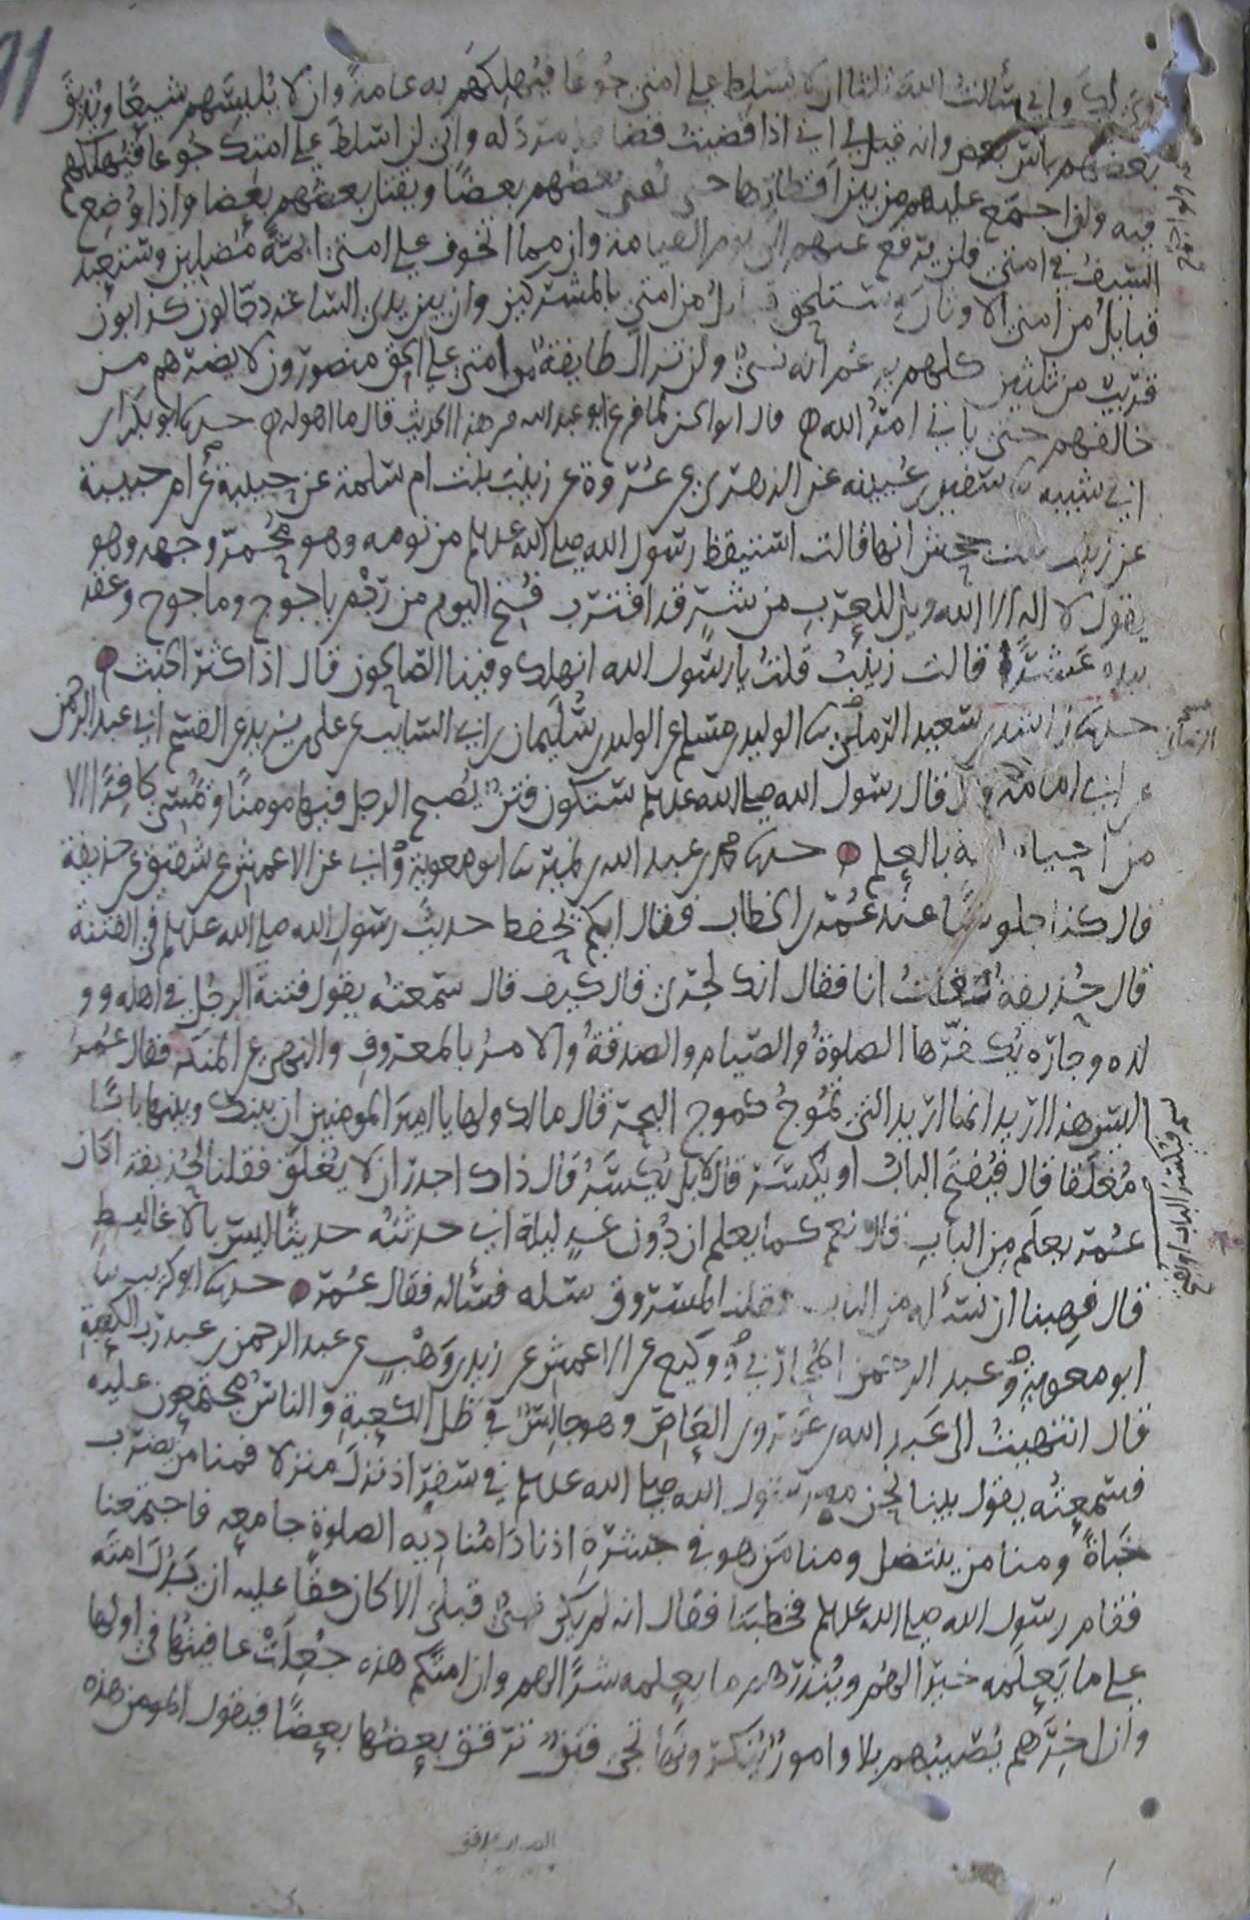 وإني سألت الله ثلثا ان لا يسلط على امتي جوعا فيهلكهم به عامة وان لا يلبسهم شيعا ويذيق
بعضهم باس بعض وانه قيل لي اذا قضيت قضا فلا مرد له واني لن اسلط على امتك جوعا فيهلكهم
فيه ولن اجمع عليهم من بين اقطارها حتى يفني بعضهم بعضا ويقتل بعضهم بعضا واذا وضع
السيف في امتي فلن يرفع عنهم الى يوم القيامة وان مما اتخوف على امتي ايمة مضلين وستعبد
قبايل من امتي الاوثان وستلحق قبايل من امتي بالمشركين وان بين يدي الساعة دجالون كذابون
قريب من ثلثين كلهم يزعم انه نبي ولن تزال طايفة من امتي على الحق منصورون لا يضرهم من
خالفهم حتى ياتي امر الله قال ابو الحسن لما فرغ ابو عبد الله من هذا الحديث قال ما اهوله حدثنا ابو بكر بن
ابي شيبة ثنا سفيان بن عيينه عن الزهري عن عروة عن زينب بنت ام سلمة عن حبيبة عن ام حبيبة
عن زينب بنت جحش انها قالت استيقظ رسول الله صلى الله عليه وسلم من نومه وهو محمر وجهه وهو
يقول لا اله الا الله ويل للعرب من شر قد اقترب فتح اليوم من ردم ياجوج وماجوج وعقد
بيده عشرا قالت زينب قلت يا رسول الله انهلك وفينا الصالحون قال اذا كثر الخبث
حدثنا راشد بن سعيد الرملي ثنا الوليد بن مسلم عن الوليد بن سليمان بن ابي السايب عن علي بن يزيد عن القسم ابي عبد الرحمن
عن ابي امامة قال قال رسول الله صلى الله عليه وسلم ستكون فتن يصبح الرجل فيها مومنا ويمسي كافرا الا
من احياه الله بالعلم حدثنا محمد بن عبد الله بن نمير ثنا ابو معوية وابي عن الاعمش عن شقيق عن حذيفة
قال كنا جلوسا عند عمر بن الخطاب فقال ايكم يحفظ حديث رسول الله صلى الله عليه وسلم في الفتنة
قال حذيفة فقلت انا فقال انك لجري قال كيف قال سمعته يقول فتنة الرجل في اهله وو
لده وجاره يكفرها الصلوة والصيام والصدقة والامر بالمعروف والنهي عن المنكر فقال عمر
ليس هذا اريد انما اريد التي تموج كموج البحر قال مالك ولها يا امير المومنين ان بينك وبينها بابا
مغلقا قال فيفتح الباب او يكسر قال لا بل يكسر قال ذاك اجدر ان لا يغلق فقلنا لحذيفة اكان
عمر يعلم من الباب قال نعم كما يعلم ان دون غد ليلة اني حدثته حديثا ليس بالاغاليط
قال فهبنا ان نسئله من الباب فقلنا لمسروق سله فسئاله فقال عمر حدثنا ابو كريب ثنا
ابو معوية وعبد الرحمن المحاربي ووكيع عن الاعمش عن زيد بن وهب عن عبد الرحمن بن عبد رب الكعبة
قال انتهيت الى عبد الله بن عمرو بن العاص وهو جالس في ظل الكعبة والناس مجتمعون عليه
فسمعته يقول بينا نحن مع رسول الله صلى الله عليه وسلم في سفر اذ نزل منزلا فمنا من يضرب
خباة ومنا من ينتضل ومنا من هو في جشره اذ نادا مناديه الصلوة جامعه فاجتمعنا
فقام رسول الله صلى الله عليه وسلم فخطبنا فقال انه لم يكن نبي قبلي الا كان حقا عليه ان يدل امته
على ما يعلمه خيرا لهم وينذرهم ما يعلمه شرا لهم وان امتكم هذه جعلت عافيتها في اولها
وان اخرهم يصيبهم بلا وامور ينكرونها تجي فتن ترقق بعضها بعضا فيقول المومن هذه